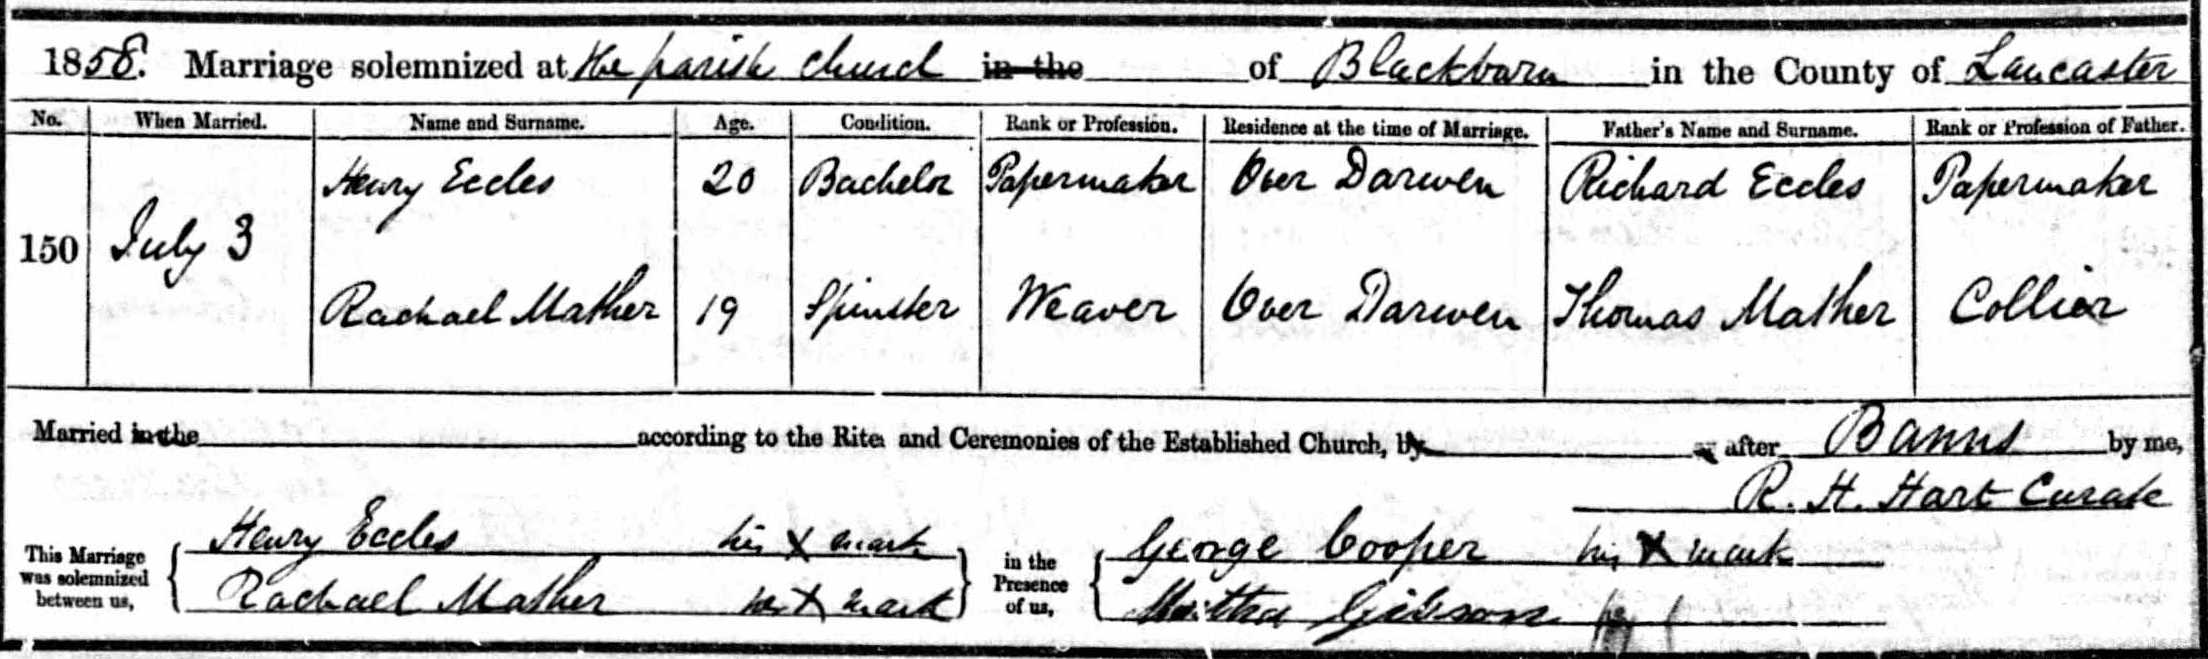 1858. Marriage solemnized at the parish church in the of Blackburn in the County of Lancaster
No. When Married. Name and Surname. Age. Condition. Rank or Profession. Residence at the time of Marriage. Father's Name and Surname. Rank or Profession of Father.
Henry Eccles 20 Bachelor Papermaker Over Darwen Richard Eccles Papermaker
150 July 3
Rachael Mather 19 Spinster Weaver Over Darwen Thomas Mather Collier
Married in the according to the Rites and Ceremonies of the Established Church, by or after Banns by me,
R. H. Hart Curate
This Marriage was solemnized between us, Henry Eccles his X mark
Rachael Mather her X mark
in the Presence of us, George Cooper his X mark
Martha Gibson